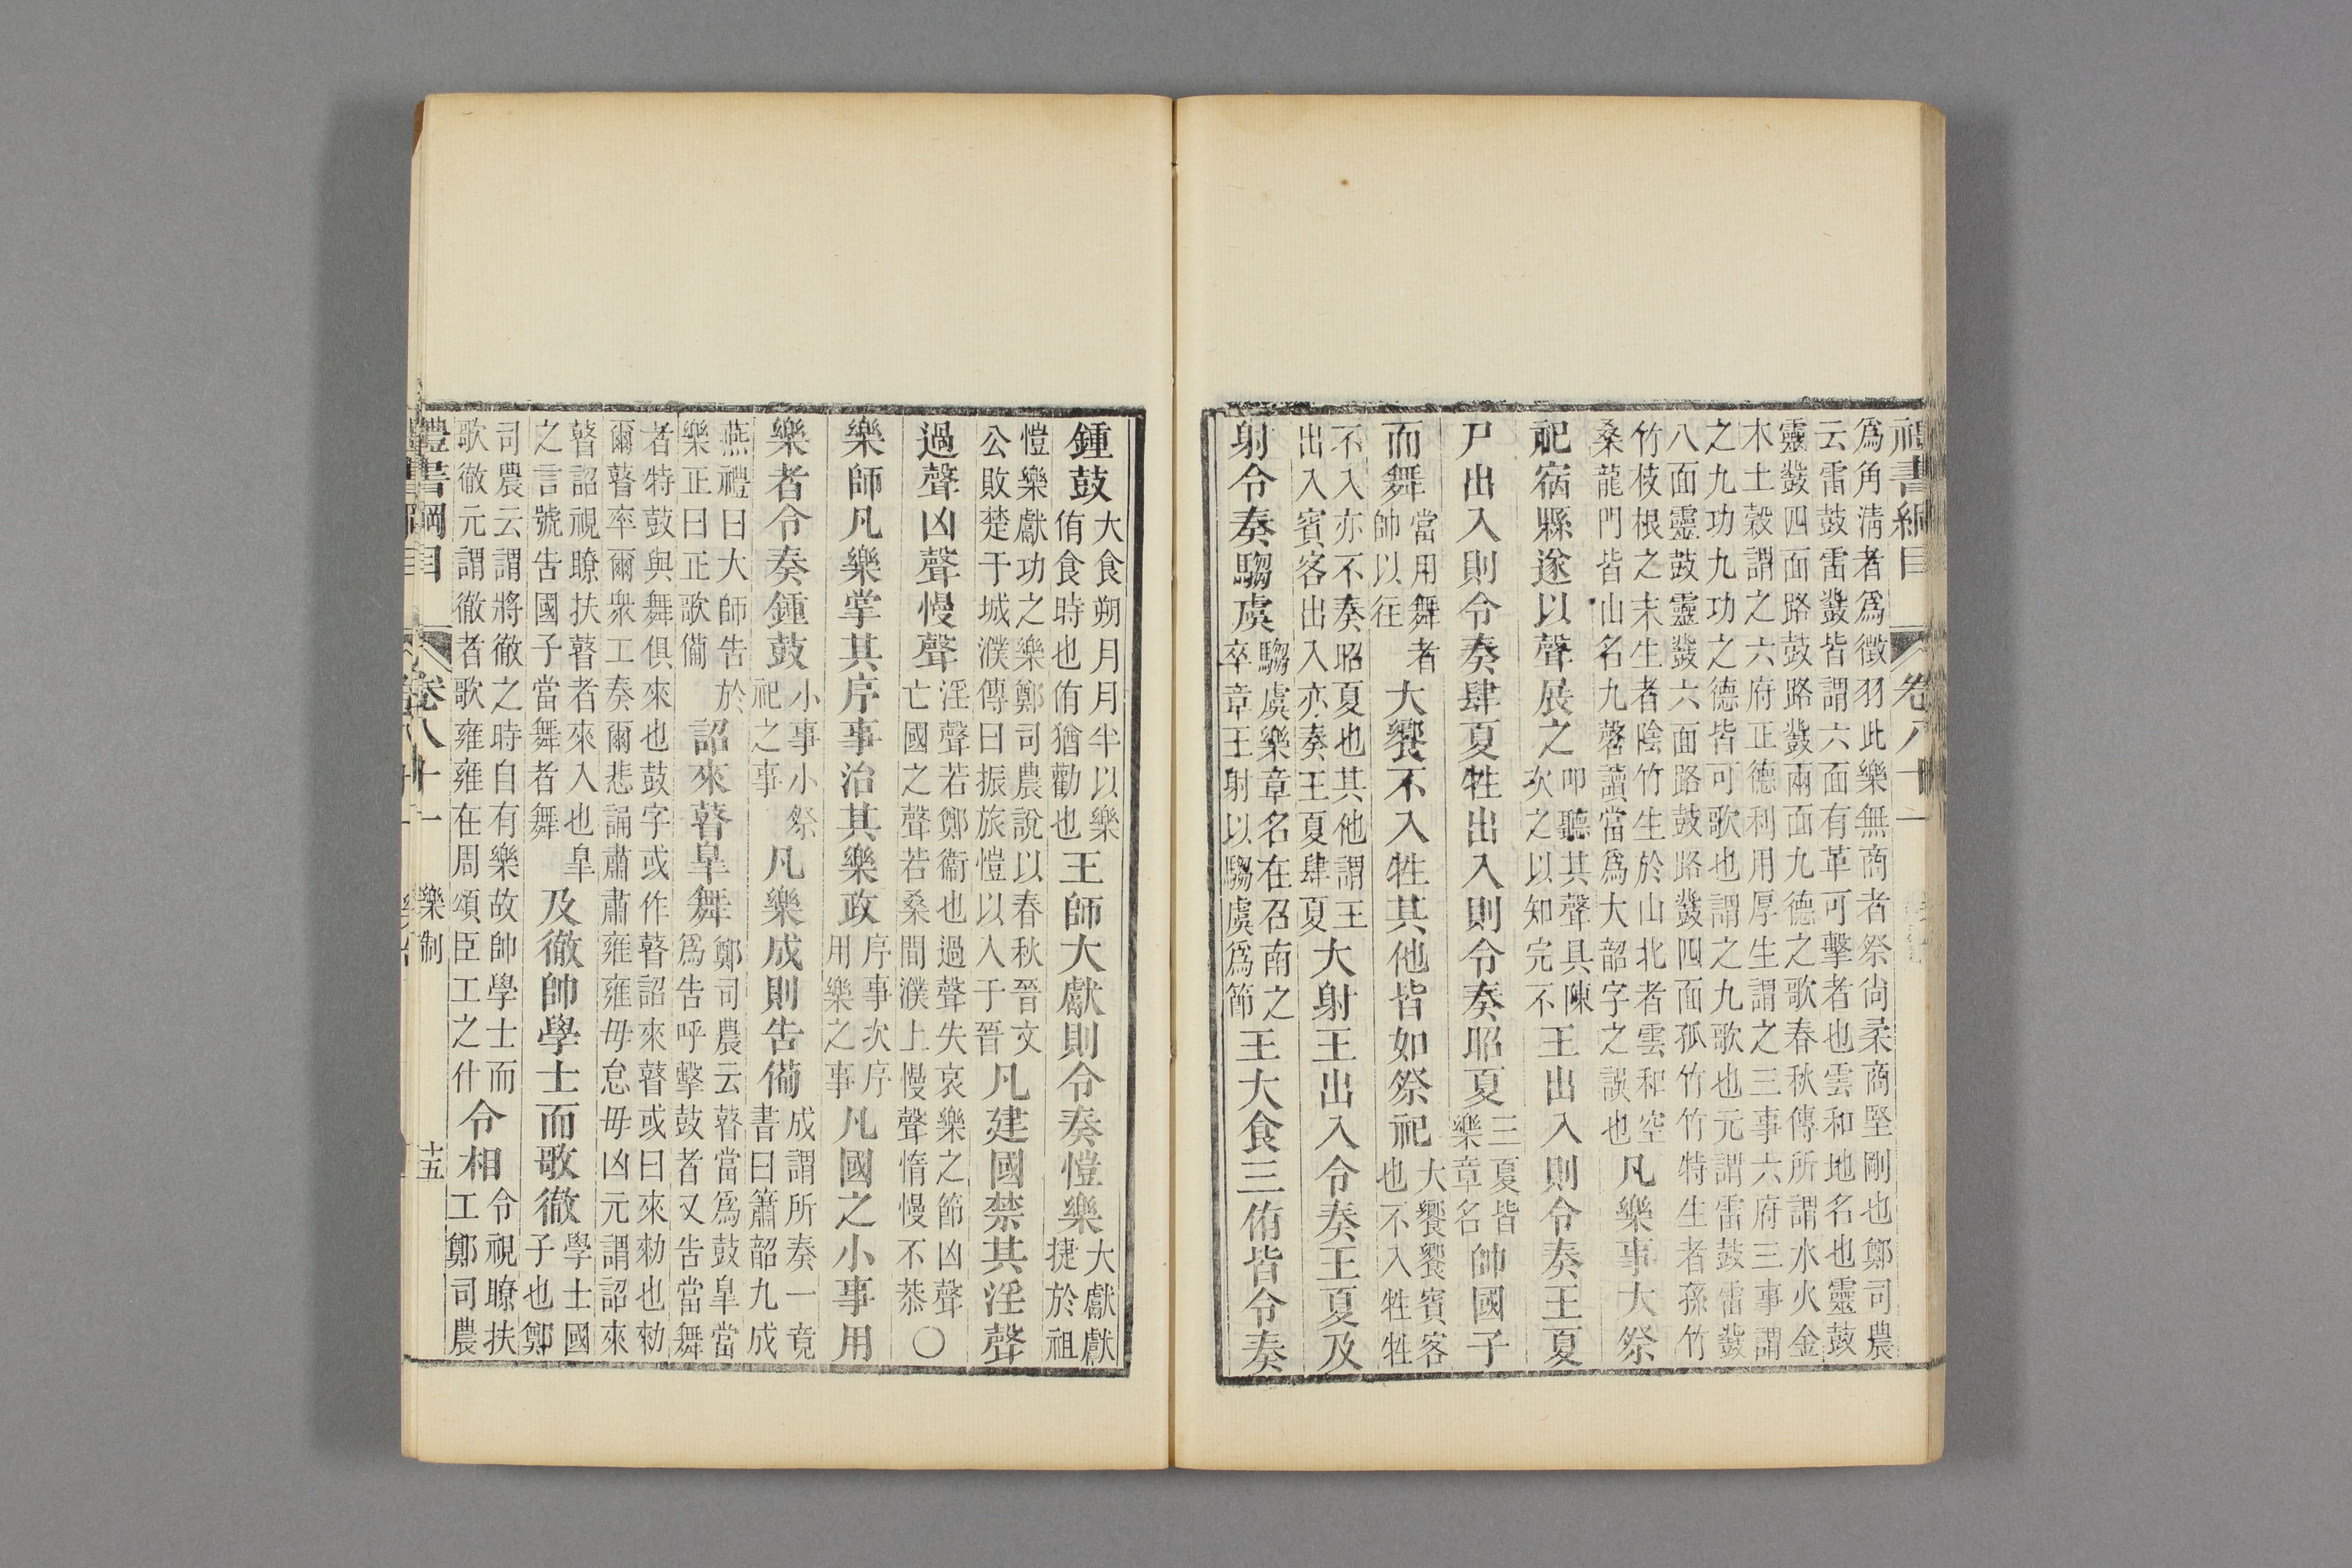 禮書綱目 卷八十一
爲角清者爲徵羽此樂無商者祭尚柔商堅剛也鄭司農
云雷鼓雷鼗皆謂六面有革可擊者也雲和地名也靈鼓
靈鼗四面路鼓路鼗兩面九德之歌春秋傳所謂水火金
木土穀謂之六府正德利用厚生謂之三事六府三事謂
之九功九功之德皆可歌也謂之九歌也元謂雷鼓雷鼗
八面靈鼓靈鼗六面路鼓路鼗四面孤竹竹特生者孫竹
竹枝根之末生者陰竹生於山北者雲和空桑龍門皆山名九磬讀當爲大韶字之誤也凡樂事大祭
祀宿縣遂以聲展之叩聽其聲具陳次之以知完不王出入則令奏王夏
尸出入則令奏肆夏牲出入則令奏昭夏三夏皆樂章名帥國子
而舞當用舞者帥以往大饗不入牲其他皆如祭祀大饗饗賓客也不入牲牲
不入亦不奏昭夏也其他謂王出入賓客出入亦奏王夏肆夏大射王出入令奏王夏及
射令奏騶虞騶虞樂章名在召南之卒章王射以騶虞爲節王大食三侑皆令奏
鍾鼓大食朔月月半以樂侑食時也侑猶勸也王師大獻則令奏愷樂大獻獻捷於祖
愷樂獻功之樂鄭司農說以春秋晉文公敗楚于城濮傳曰振旅愷以入于晉凡建國禁其淫聲
過聲凶聲慢聲淫聲若鄭衞也過聲失哀樂之節凶聲亡國之聲若桑間濮上慢聲惰慢不恭〇
樂師凡樂掌其序事治其樂政序事次序用樂之事凡國之小事用
樂者令奏鍾鼓小事小祭祀之事凡樂成則告備成謂所奏一竟書曰簫韶九成
燕禮曰大師告於樂正曰正歌備詔來瞽皐舞鄭司農云瞽當爲鼓皐當爲告呼擊鼓者又告當舞
者特鼓與舞俱來也鼓字或作瞽詔來瞽或曰來勑也勑
爾瞽率爾衆工奏爾悲誦肅肅雍雍毋怠毋凶元謂詔來
瞽詔視瞭扶瞽者來入也皐之言號告國子當舞者舞及徹帥學士而歌徹學士國子也鄭
司農云謂將徹之時自有樂故帥學士而歌徹元謂徹者歌雍雍在周頌臣工之什令相令視瞭扶工鄭司農
禮書綱目 卷八十一 樂制 十五